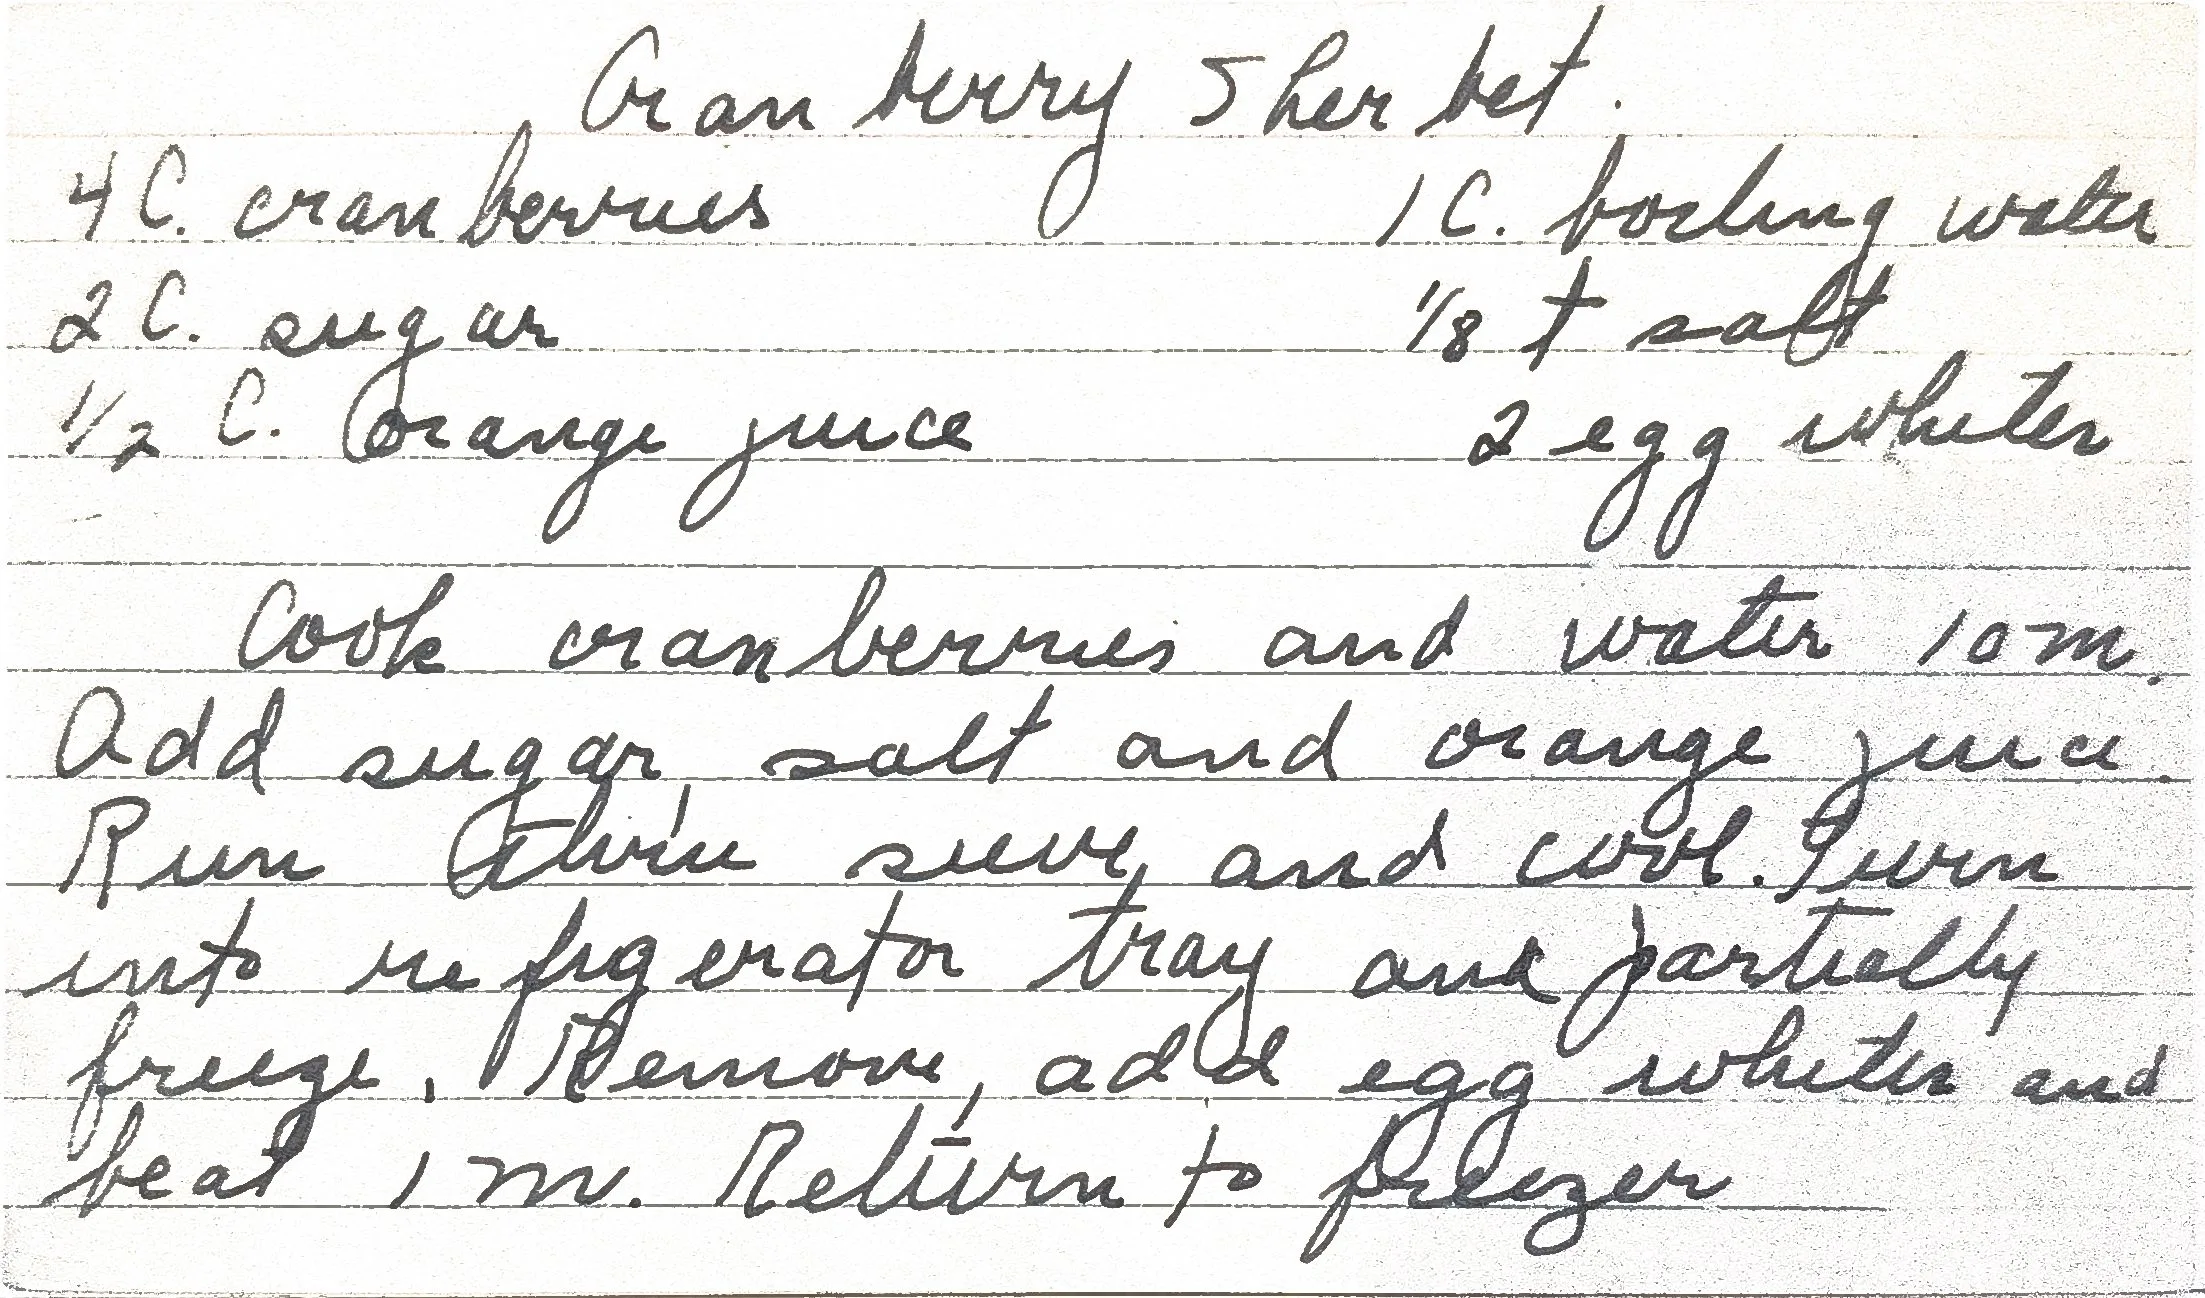 Cranberry Sherbet.
4 C. cranberries 1 C. boiling water
2 C. sugar 1/8 t salt
1/2 C. orange juice 2 egg whites
Cook cranberries and water 10 m.
Add sugar, salt and orange juice.
Run thru sieve, and cool. Turn
into refrigerator tray and partially
freeze. Remove, add egg whites and
beat 1 m. Return to freezer